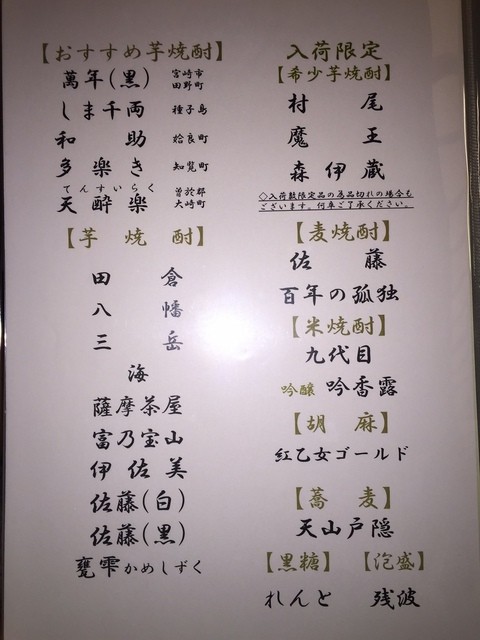 【おすすめ芋焼酎】
萬年(黒) 宮崎市田野町
しま千両 種子島
和助 姶良町
多楽き 知覧町
てんすいらく
天酔楽 曽於郡大崎町
【芋焼酎】
田倉
八幡
三岳
海
薩摩茶屋
富乃宝山
伊佐美
佐藤(白)
佐藤(黒)
甕雫かめしずく
入荷限定
【希少芋焼酎】
村尾
魔王
森伊蔵
◇入荷数限定品の為品切れの場合も
ございます。何卒ご了承ください。
【麦焼酎】
佐藤
百年の孤独
【米焼酎】
九代目
吟醸 吟香露
【胡麻】
紅乙女ゴールド
【蕎麦】
天山戸隠
【黒糖】 【泡盛】
れんと 残波